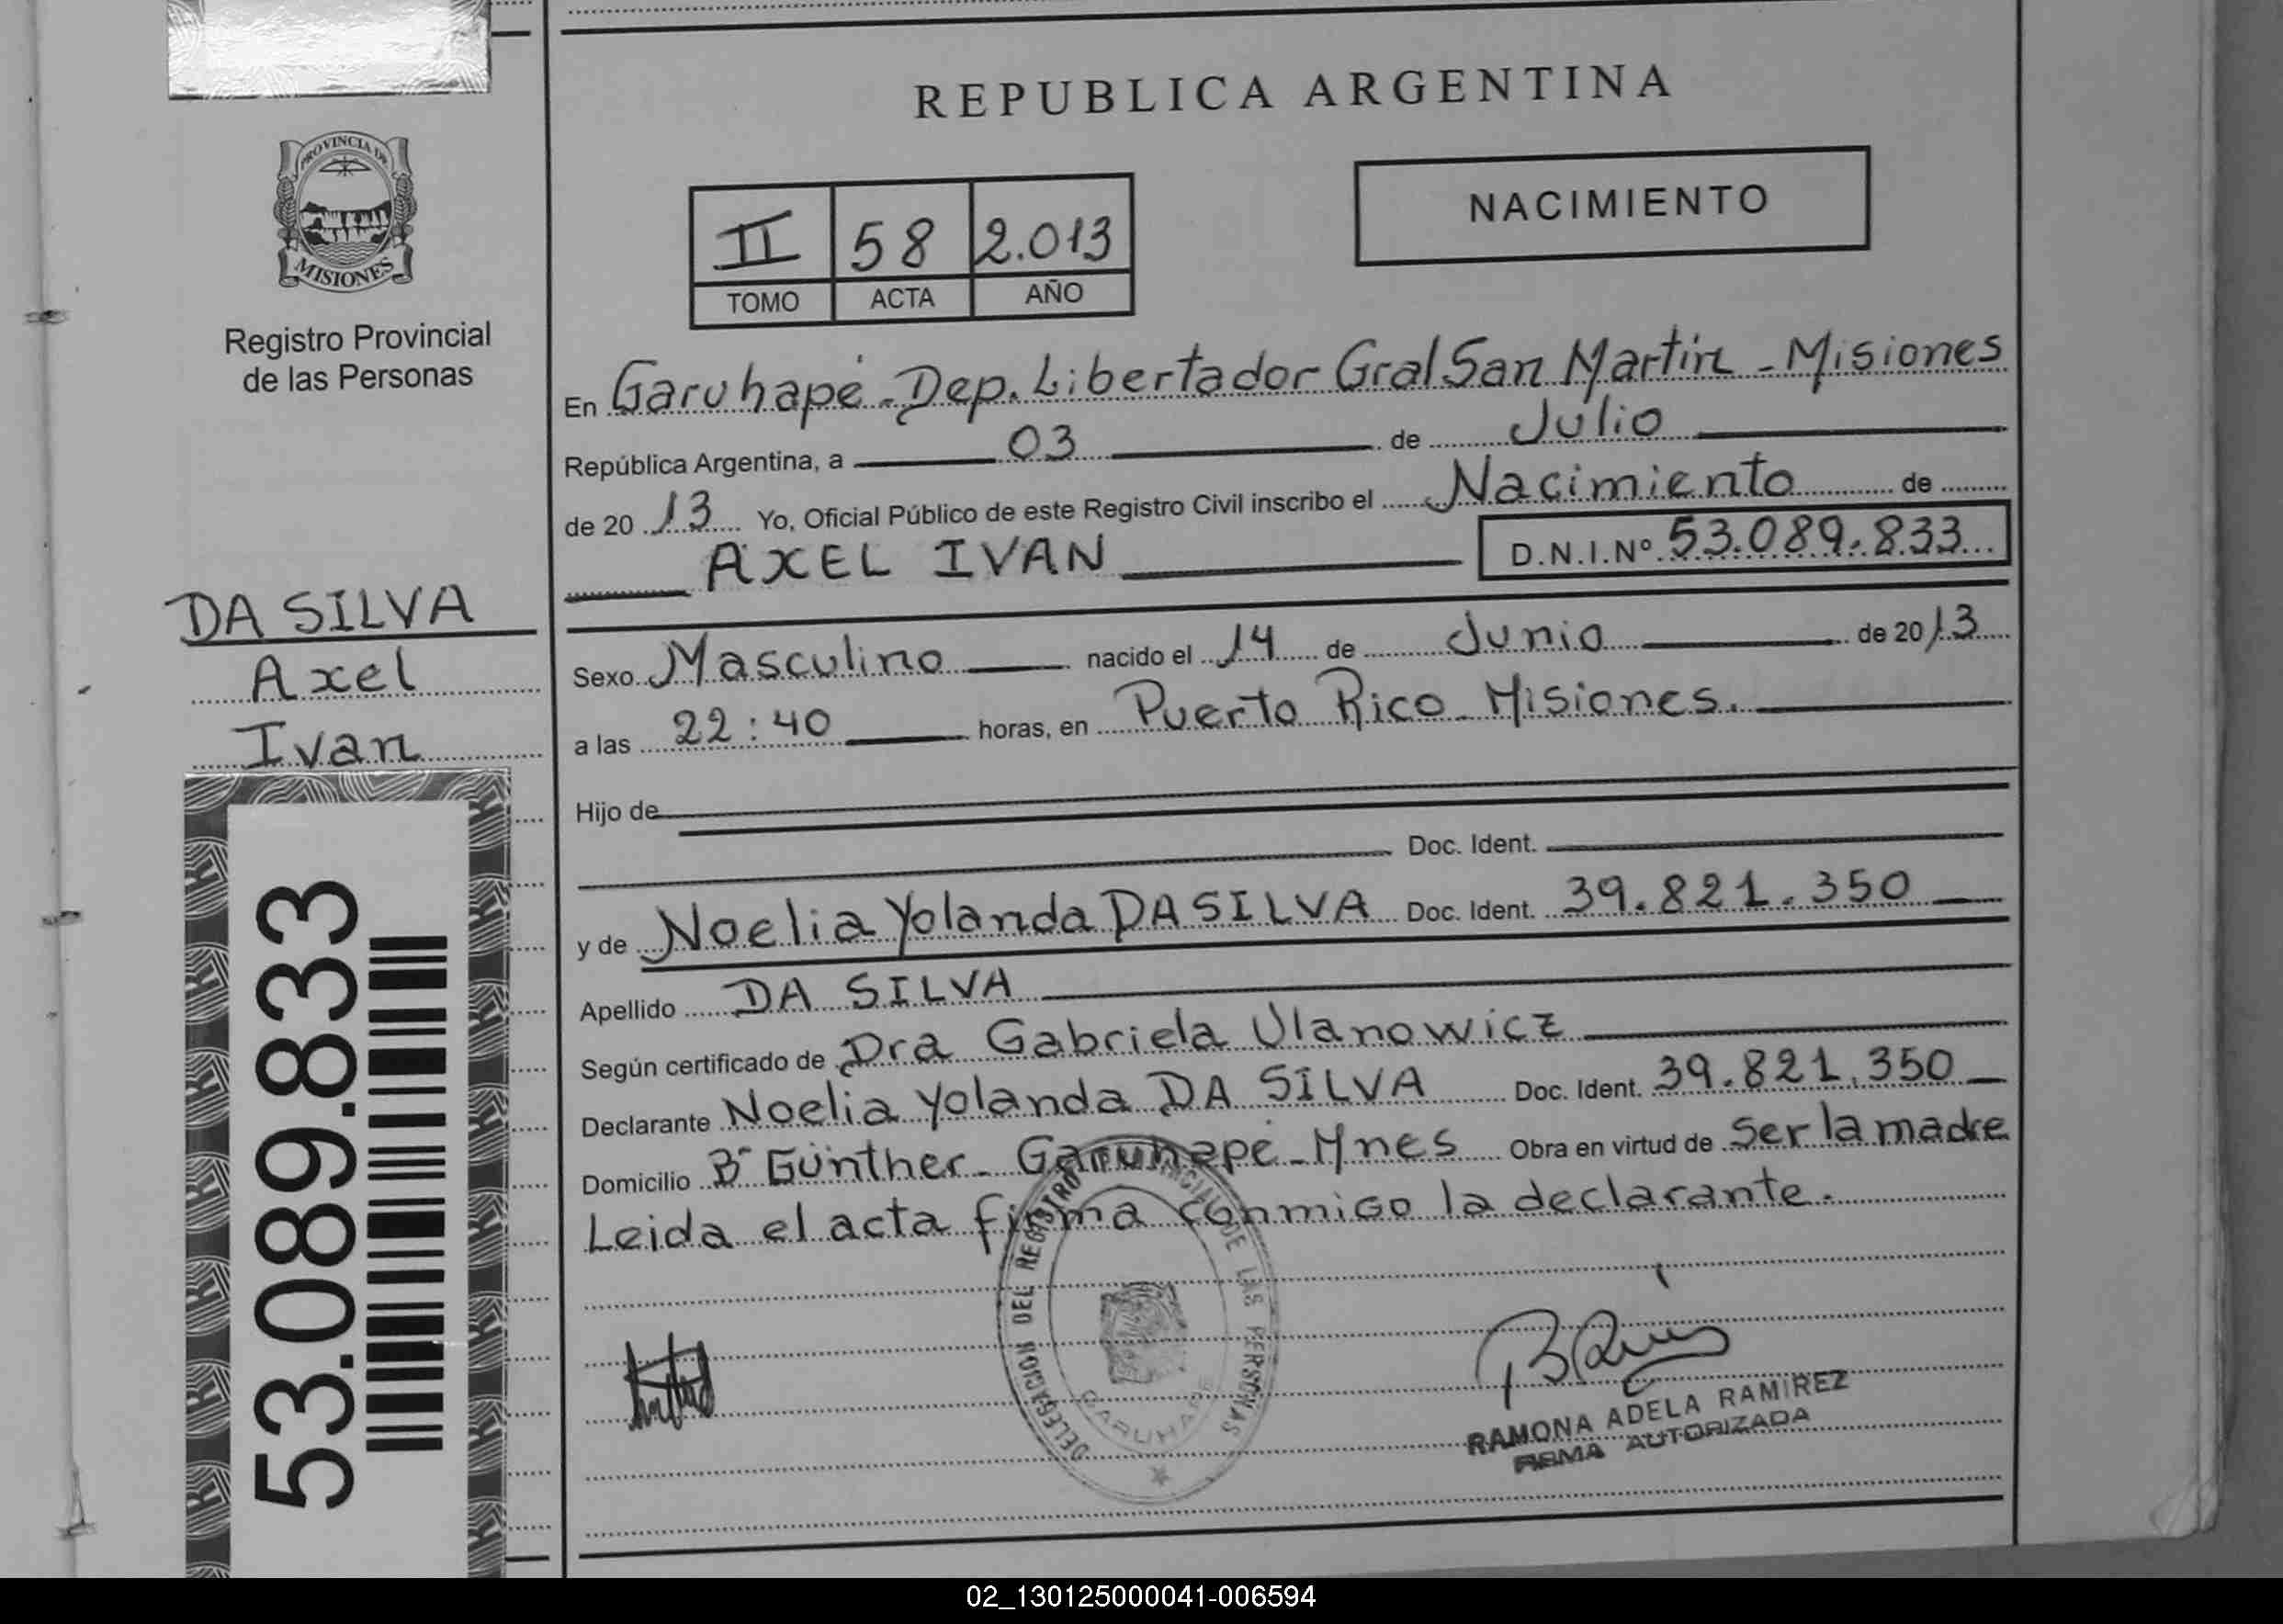 REPUBLICA ARGENTINA
PROVINCIA DE
MISIONES
Registro Provincial
de las Personas
NACIMIENTO
II 58 2.013
TOMO ACTA AÑO
En Garuhapé - Dep. Libertador Gral San Martín - Misiones
República Argentina, a 03 de Julio
de 20 13 Yo, Oficial Público de este Registro Civil inscribo el Nacimiento de
AXEL IVAN D.N.I.Nº 53.089.833
DA SILVA
Axel
Ivan
Sexo Masculino nacido el 14 de Junio de 20 13
a las 22:40 horas, en Puerto Rico - Misiones.
Hijo de
Doc. Ident.
y de Noelia Yolanda DA SILVA Doc. Ident. 39.821.350
Apellido DA SILVA
Según certificado de Dra Gabriela Ulanowicz
Declarante Noelia Yolanda DA SILVA Doc. Ident. 39.821.350
Domicilio Bº Günther - Garuhapé - Mnes Obra en virtud de Ser la madre
Leida el acta firma conmigo la declarante.
53.089.833
DELEGACION DEL REGISTRO PROVINCIAL DE LAS PERSONAS
GARUHAPE
RAMONA ADELA RAMIREZ
FIRMA AUTORIZADA
02_130125000041-006594